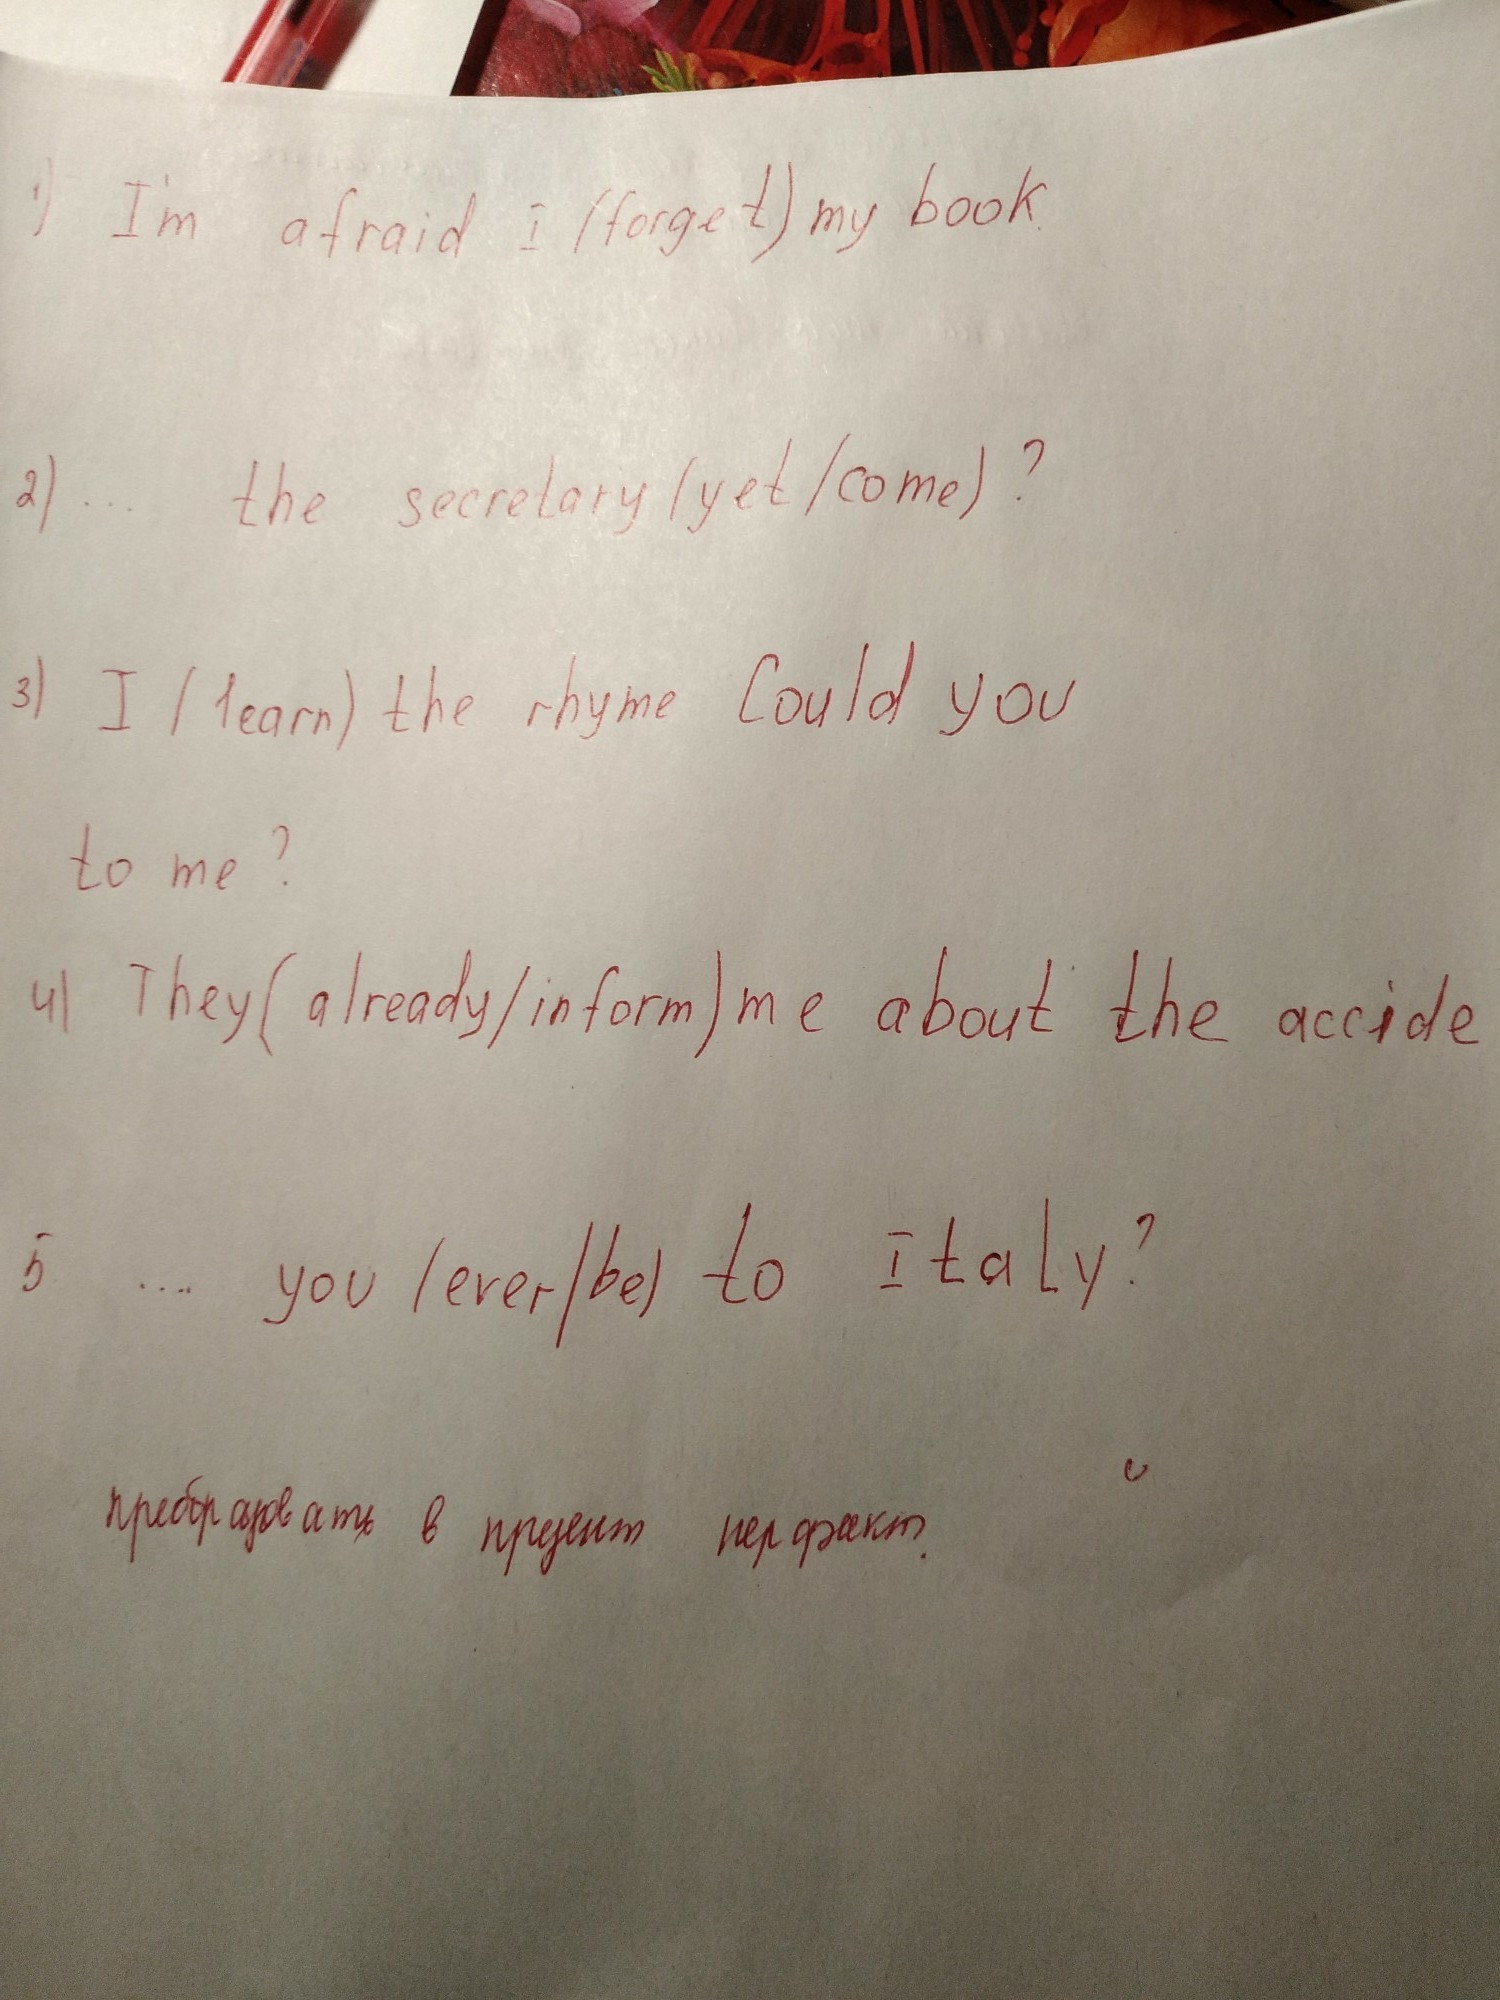 1) I'm afraid I (forget) my book.
2) ... the secretary (yet/come)?
3) I (learn) the rhyme Could you
to me?
4) They (already/inform) me about the accide
5 ... you (ever/be) to Italy?
преобразовать в презент перфект.